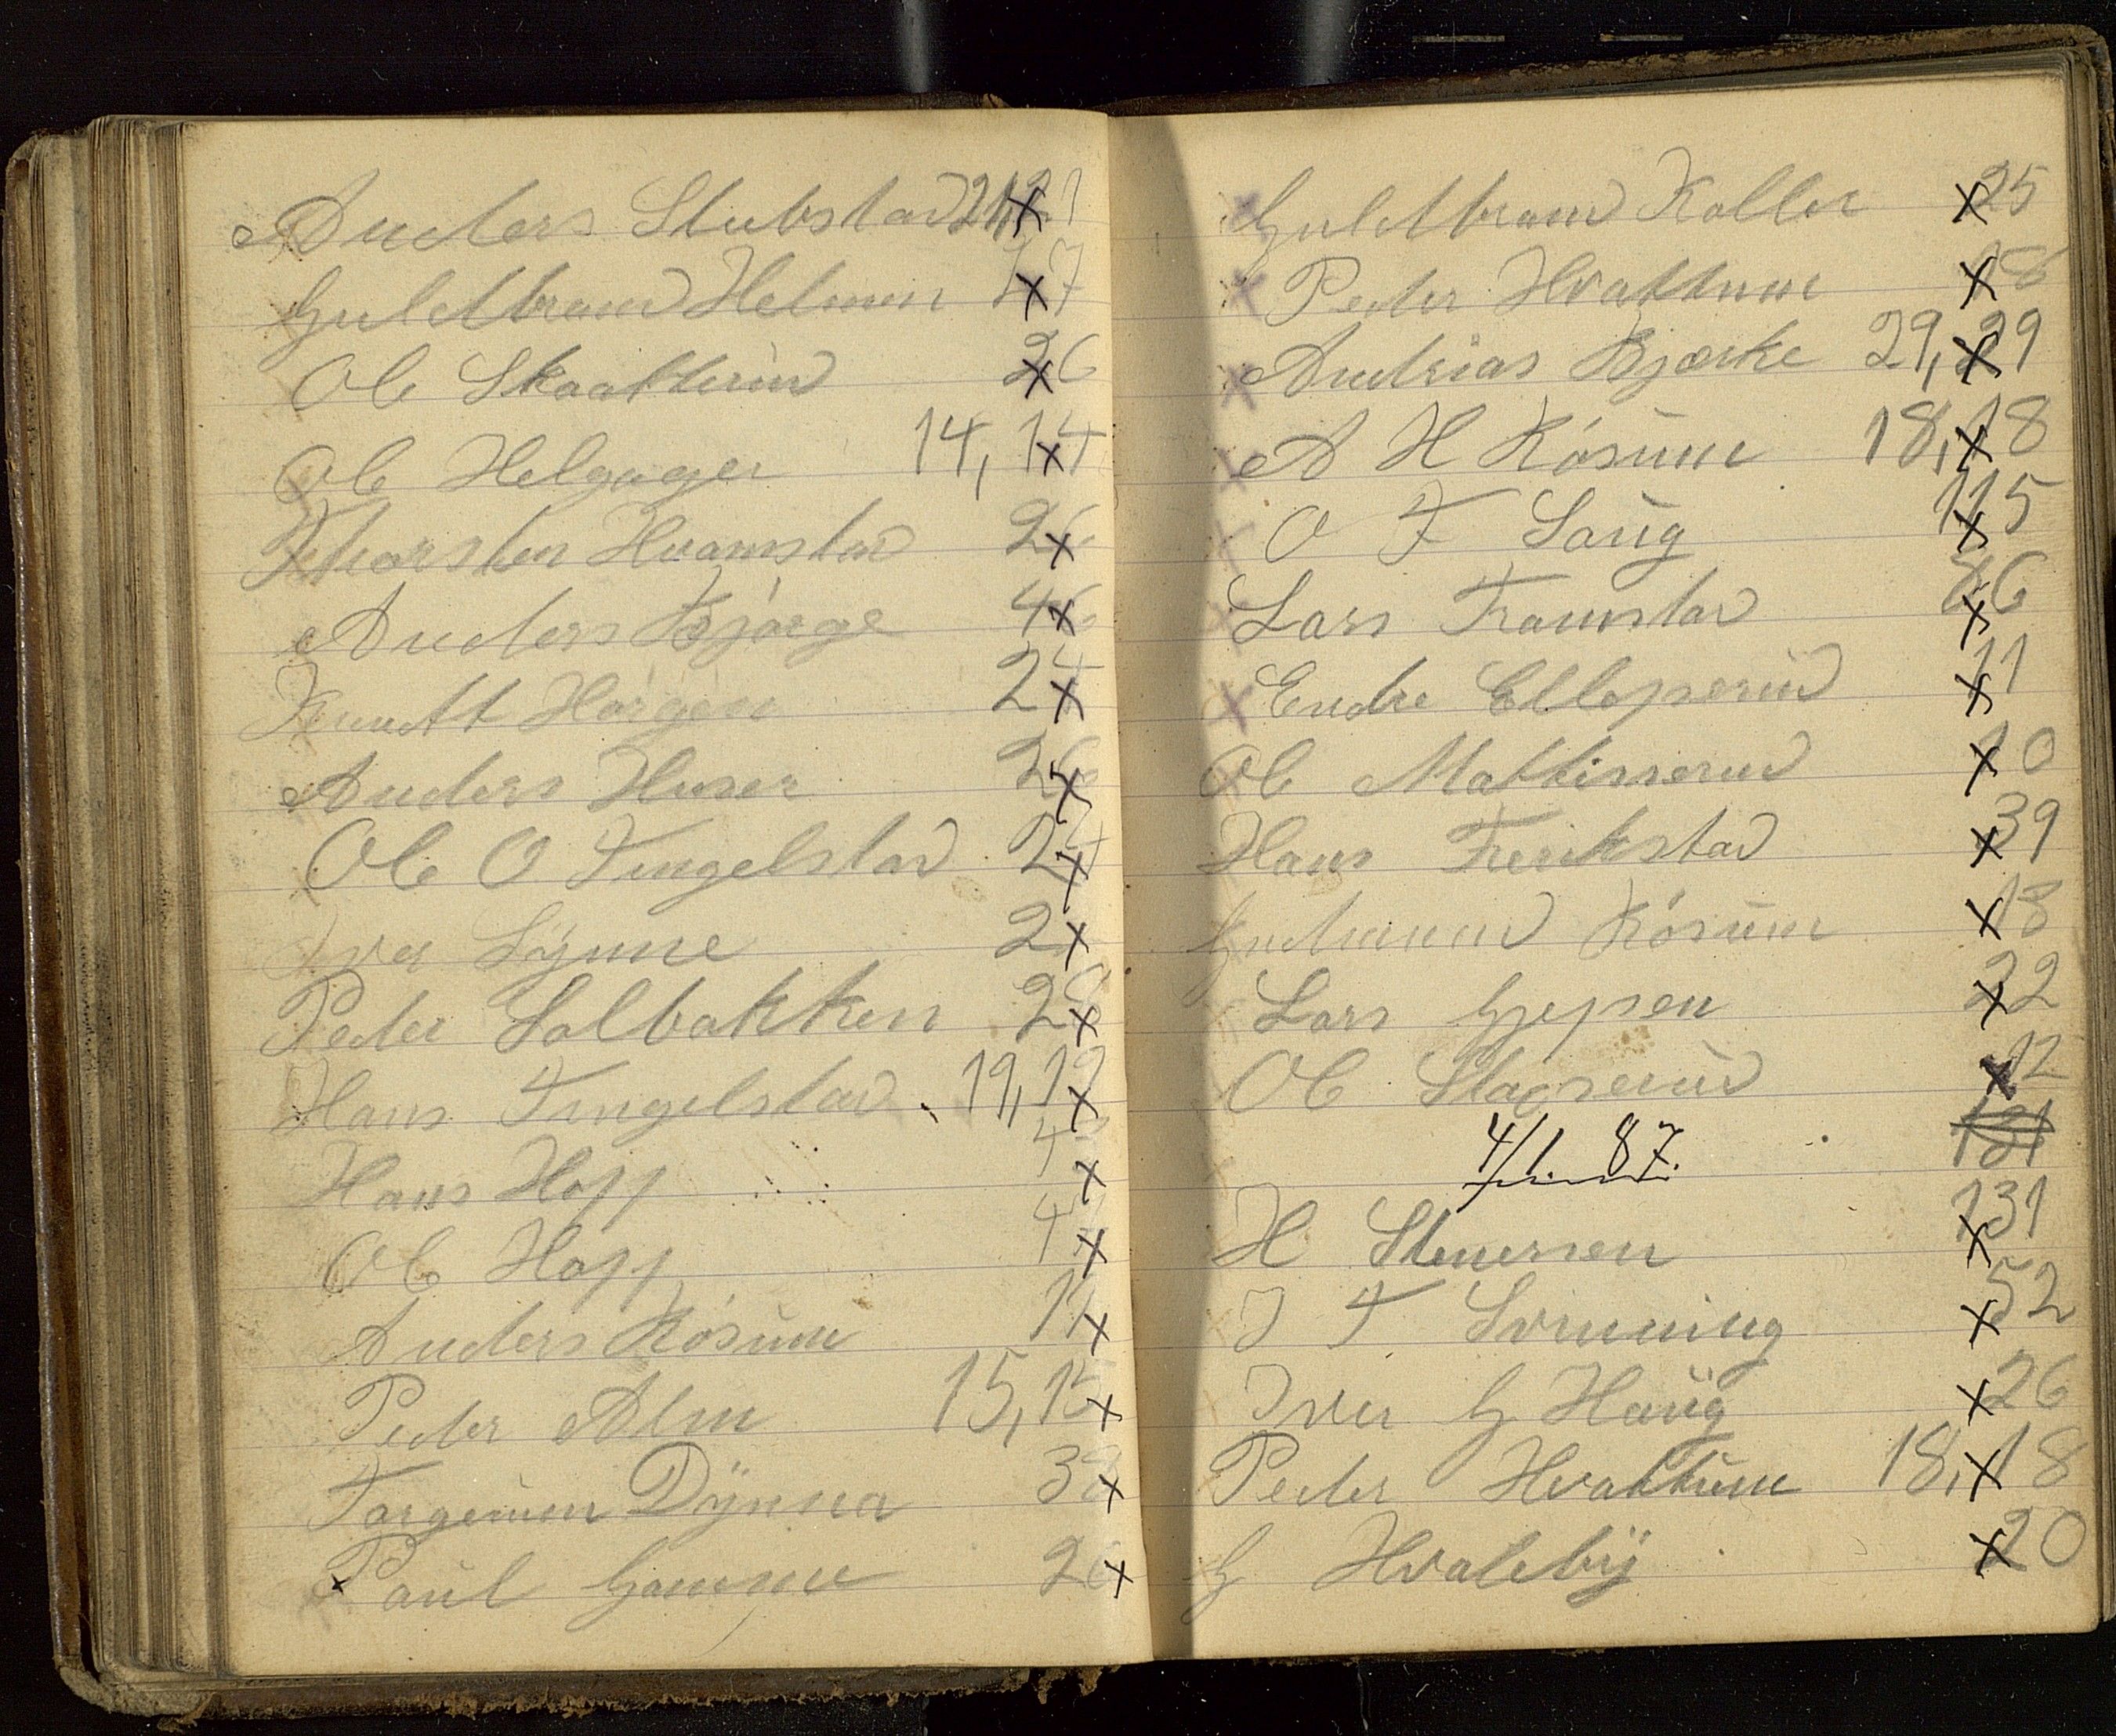 Anders Stubstad 21, 21
Guldbrand Helmen 27
Ole Skaatterud 26
Ole Helgager 14, 14
Thorsten Hvamstad 26
Anders Bjørge 46
Knudt Horgen 24
Anders Huser 26
Ole O Tingelstad 24
Iver Lynne 2
Peder Solbakken 28
Hans Tingelstad 19, 19
Hans Hopp 4
Ole Hopp 4
Anders Røsum 1
Peder Alm 15, 15
Torgeium Dynna 38
Paul Gamme 2
Guldbrand Koller x 25
x Peder Hvattum x 18
x Andreas Bjørke 29, x 29
x A H Røsum 18, x 18
x O T Saug x 115
x Lars Framstad x 26
x Endre Ellefserud x 11
Ole Mattisserud x 10
Hans Frerikstad x 39
Gudmund Røsum x 18
Lars Gjepsen x 22
Ole Stagserud x 12
4/1. 87. 131
H Stenersen x 131
I T Svinning x 52
Iver G Haug x 26
Peder Hvattum 18, x 18
G Hvaleby x 20